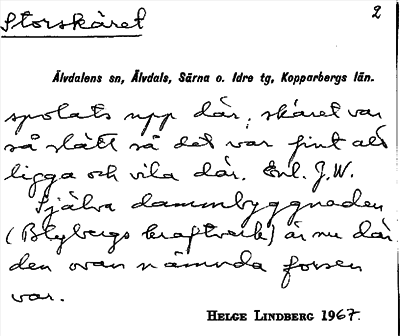 Storskäret
2
Älvdalens sn, Älvdals, Särna o. Idre tg, Kopparbergs län.
spolats upp där; skäret var
så slätt så det var fint att
ligga och vila där. Enl. J.W.
Själva dammbyggnaden
(Blybergs kraftverk) är nu där
den ovan nämnda forsen
var.
HELGE LINDBERG 1967.